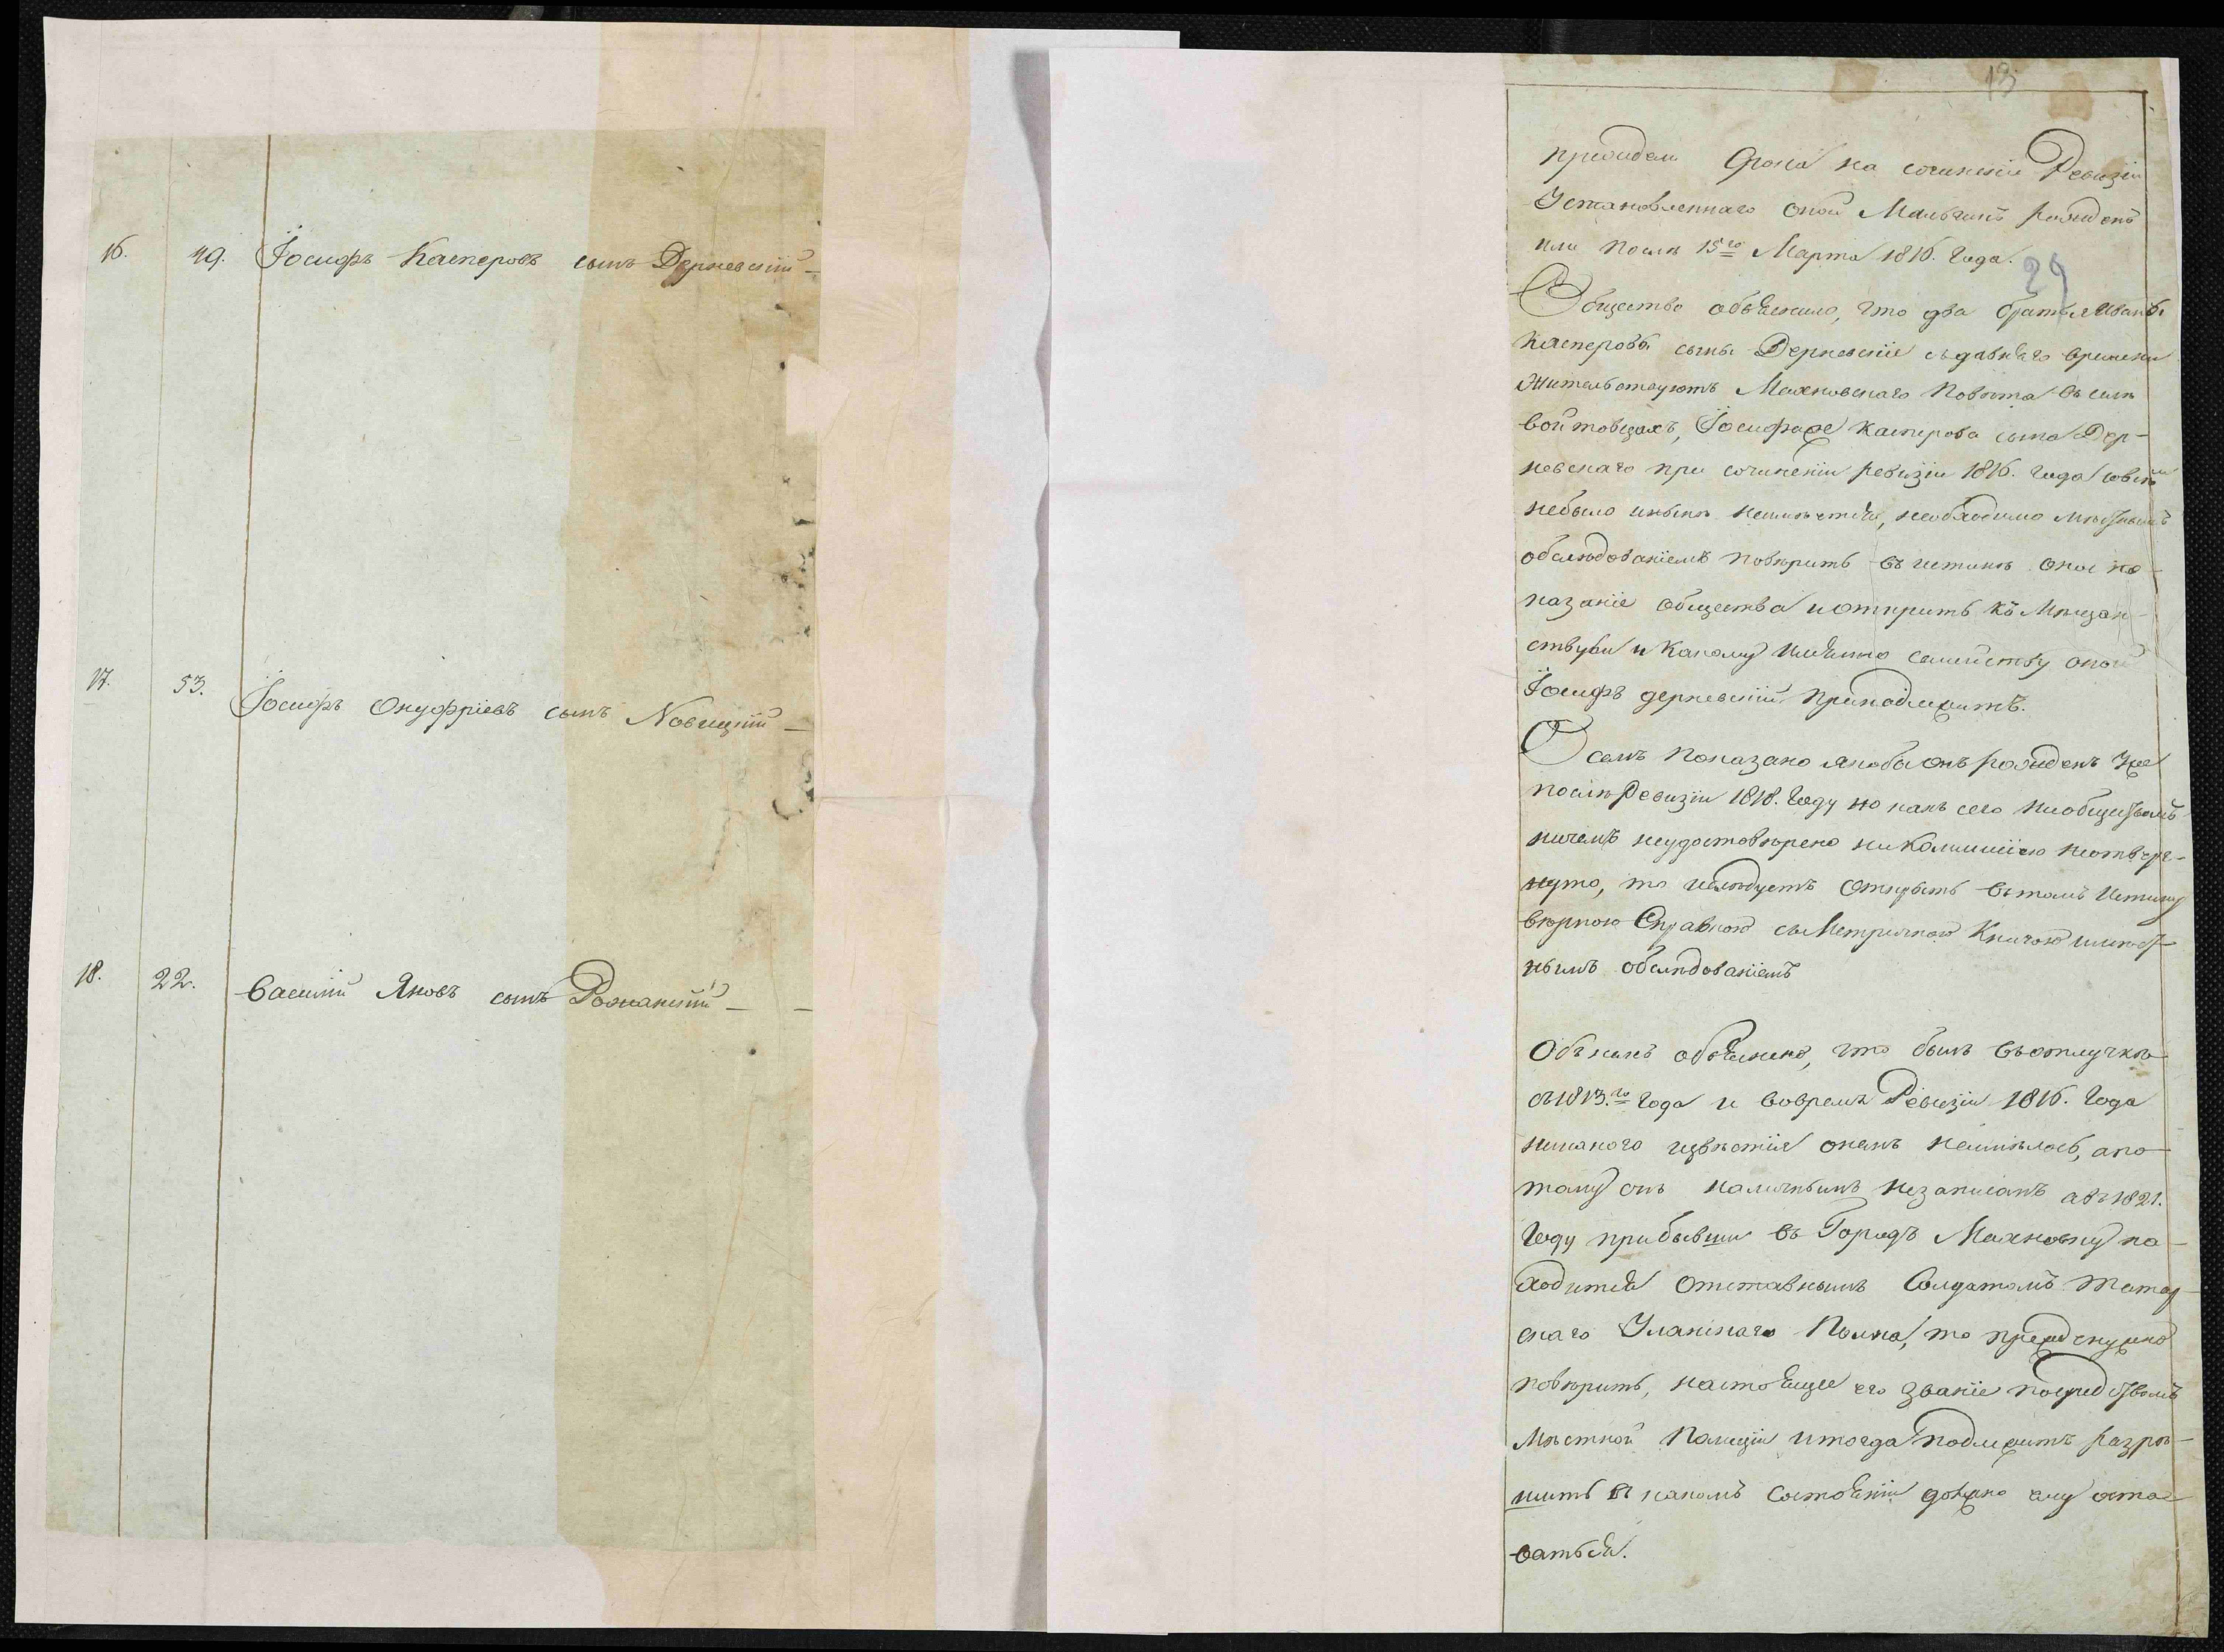 16. 49. Іосифъ Касперовъ сынъ Дерневскій —
17. 53. Іосифъ Онуфріевъ сынъ Новицкій —
18. 22. Василій Яковъ сынъ Рожанскій — —
13
прежде Срока на сочиненіе Ревизіи
Установленнаго оной Мальчикъ рожденъ
или послѣ 15го Марта 1816. Года.
29
Общество объяснило, что два братья Иваны
Касперовы сыны Дерневскіе съ давняго времени
жительствуютъ Махновскаго Повѣта въ селѣ
войтовцахъ, Іосифа же Касперова сына Дер-
невскаго при сочиненіи ревизіи 1816. года
небыло и нынѣ неимѣется, необходимо мѣстнымъ
обслѣдованіемъ повѣрить въ истинѣ оное по-
казаніе общества и открить къ Мѣщан-
ству ли и какому имѣнно семейству оной
Іосифъ дерневскій принадлежитъ.
О семъ показано якобы онъ рожденъ уже
послѣ Ревизіи 1818. Году но какъ сего ни обществомъ
ничемъ неудостовѣрено ни Комиссіею неотверг-
нуто, то слѣдуетъ открыть въ томъ Истину
вѣрною Справкою съ Метричною Книгою и мѣст-
нымъ обслѣдованіемъ
Объ немъ объяснено, что былъ въ отлучкѣ
съ 1813.го года и вовремя Ревизіи 1816. Года
никакого извѣстія о немъ неимѣлось, а по
тому онъ наличнымъ незаписанъ а въ 1821.
Году прибывши въ Городъ Махновку на-
ходится отставнымъ Солдатомъ Татар-
скаго Уланскаго Полка, то
повѣрить, настоящее его званіе посредствомъ
Мѣстной Полиціи и тогда подлежитъ разрѣ-
шить въ какомъ состояніи должно ему оста-
ваться.